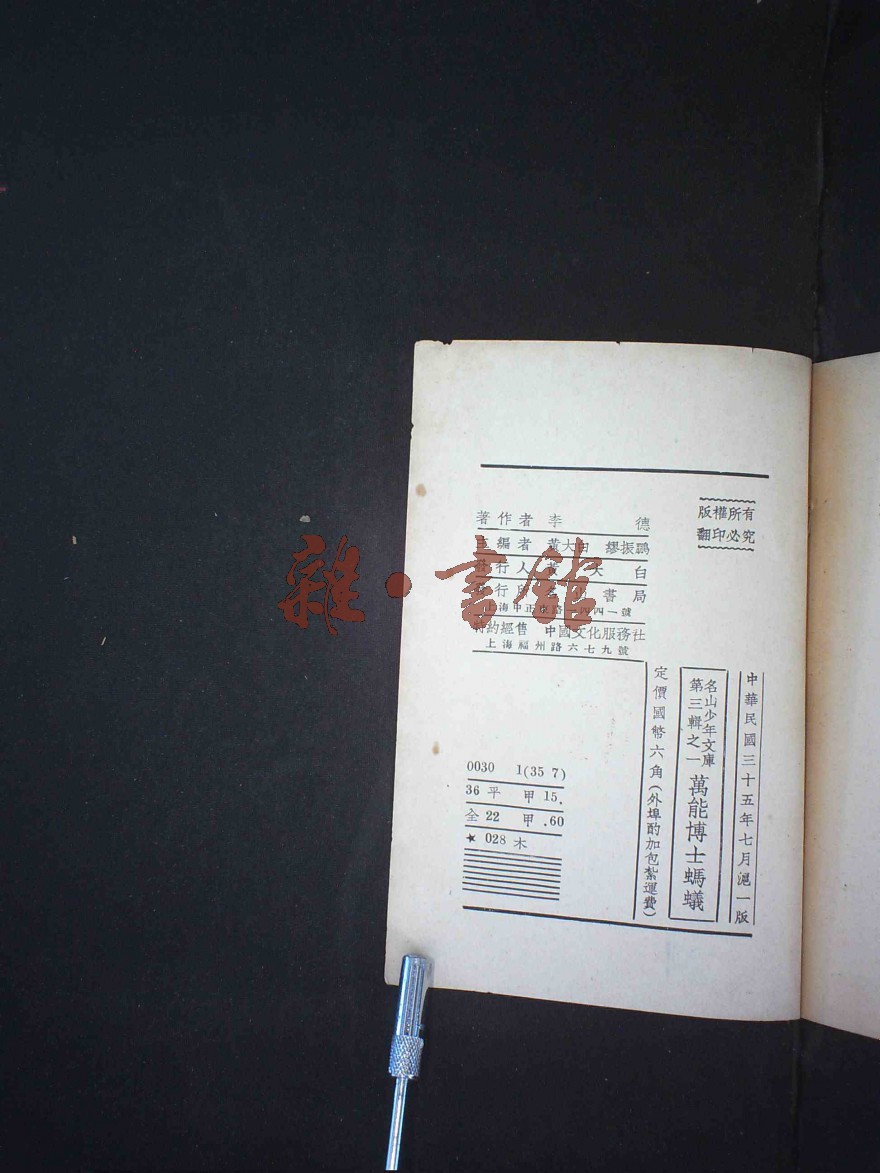 版權所有
翻印必究
中華民國三十五年七月滬一版
名山少年文庫
第三輯之一
萬能博士螞蟻
定價國幣六角(外埠酌加包紮運費)
著作者 李 德
編者 黃大白 繆振鵬
行人 黃 大 白
行 書局
上海中正東路一四四一號
特約經售 中國文化服務社
上海福州路六七九號
0030 1(35 7)
36 平 甲 15.
全 22 甲 .60
★ 028 木
雜·書館